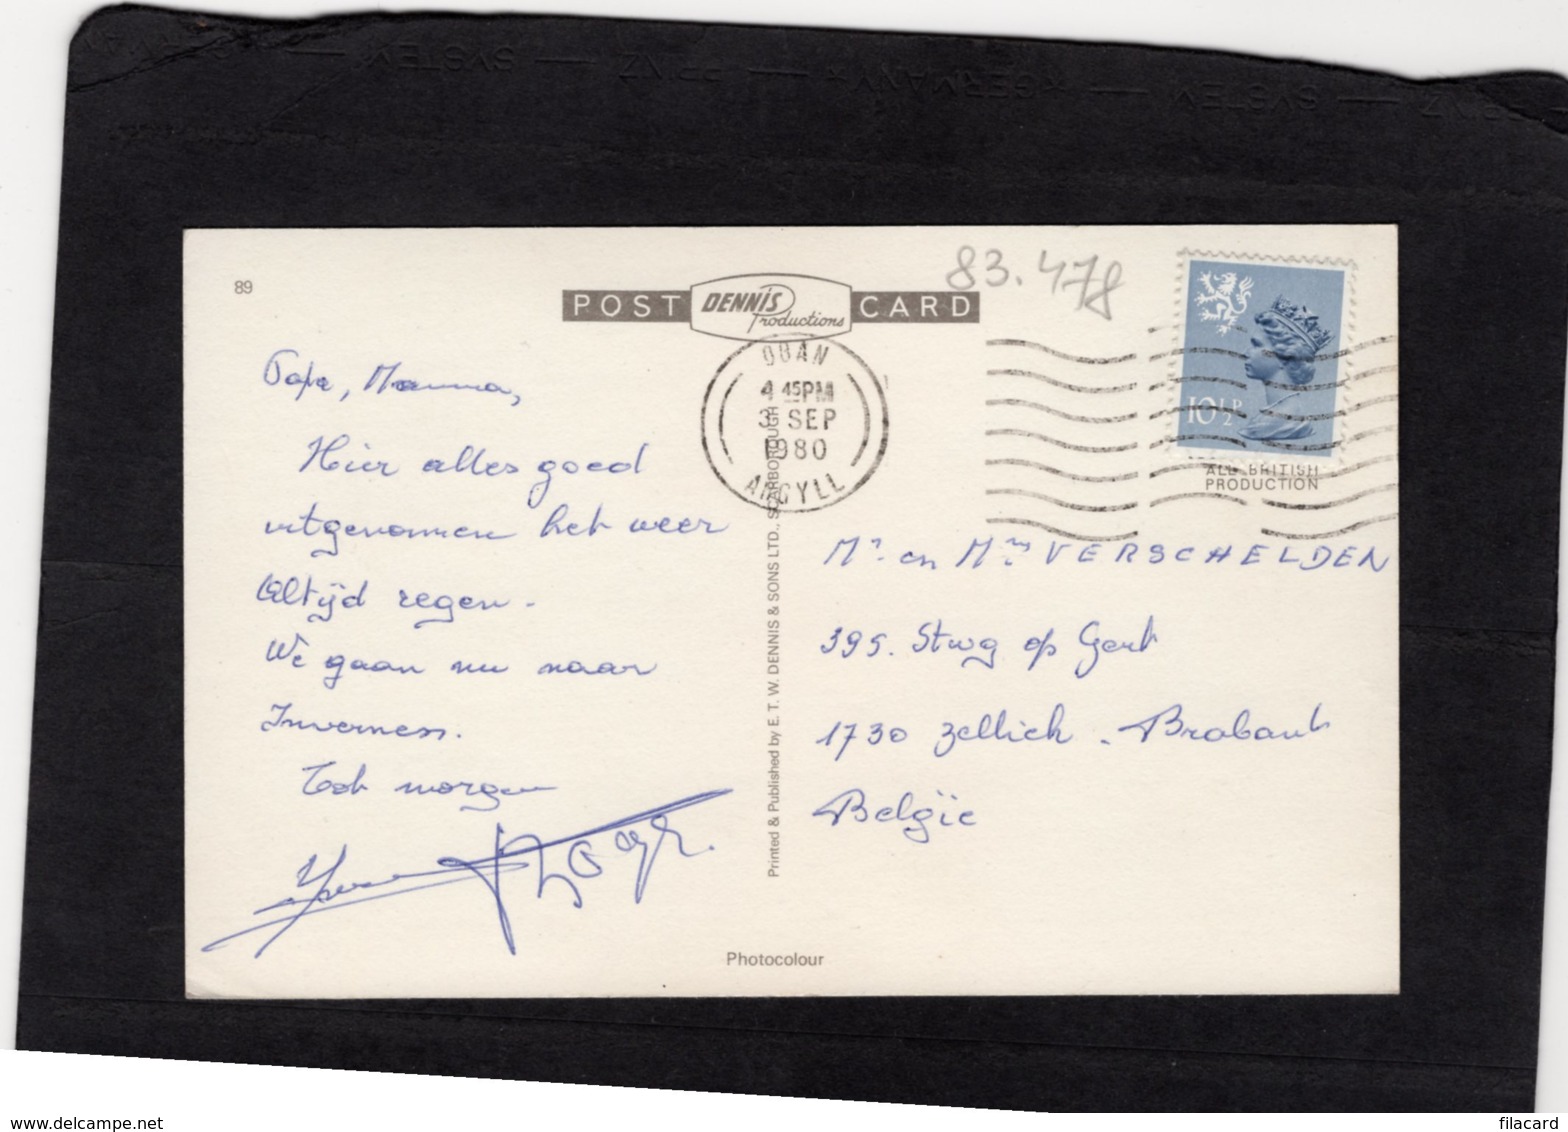 SYSTEM — PRINZ — GERMANY — SYSTEM
89
POST DENNIS Productions CARD
83.478
OBAN
4 45PM
3 SEP
1980
ARGYLL
10½P
ALL BRITISH
PRODUCTION
Papa, Mamma,
Hier alles goed
uitgenomen het weer
Altijd regen -
We gaan nu naar
Inverness.
Tot morgen
Roger.
Printed & Published by E. T. W. DENNIS & SONS LTD., SCARBOROUGH
Mr en Mme VERSCHELDEN
395. Stwg op Gent
1730 Zellick - Brabant
België
Photocolour
filacard